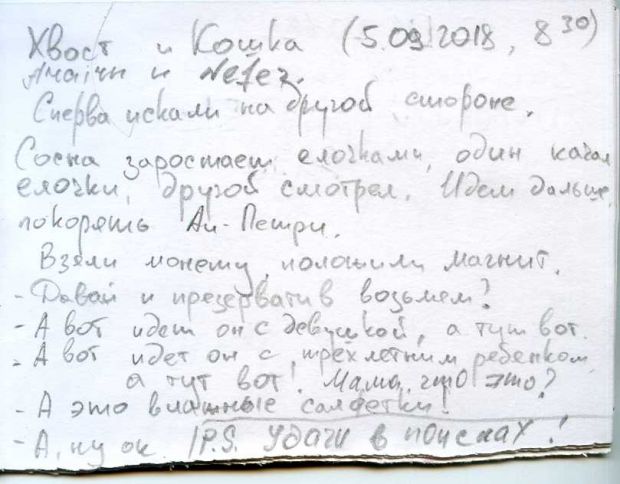 Хвост и Кошка (5.09.2018, 8 30)
и Nefez.
Сперва искали на другой стороне.
Сосна заростает елочками, один качал
елочки, другой смотрел. Идем дальше,
покорять Аи-Петри.
Взяли монету, положили магнит.
- Давай и презерватив возьмем?
- А вот идет он с девушкой, а тут вот.
- А вот идет он с трёхлетним ребенком,
а тут вот! Мама, что это?
- А это влажные салфетки!
- А, ну ок. P.S. Удачи в поисках!